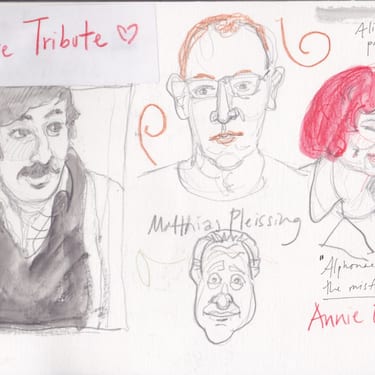 Tribute ♡
Matthias Pleissing
"Alphonse
the misf
Annie